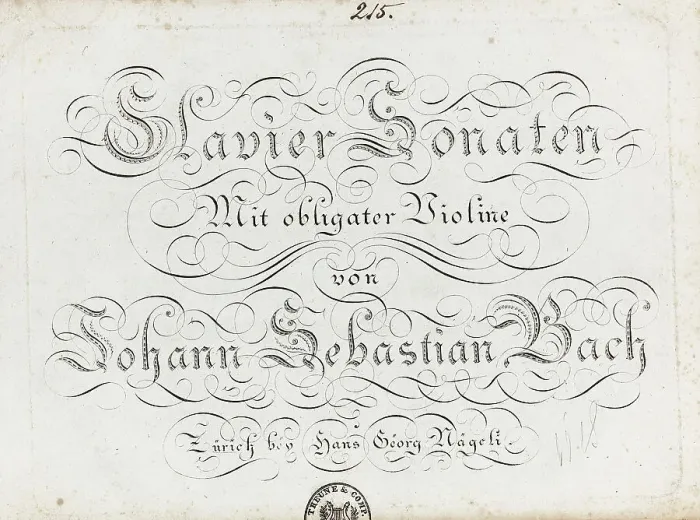 215.
Clavier Sonaten
Mit obligater Violine
von
Johann Sebastian Bach
Zürich bey Hans Georg Nägeli.
THEUNE & COMP.